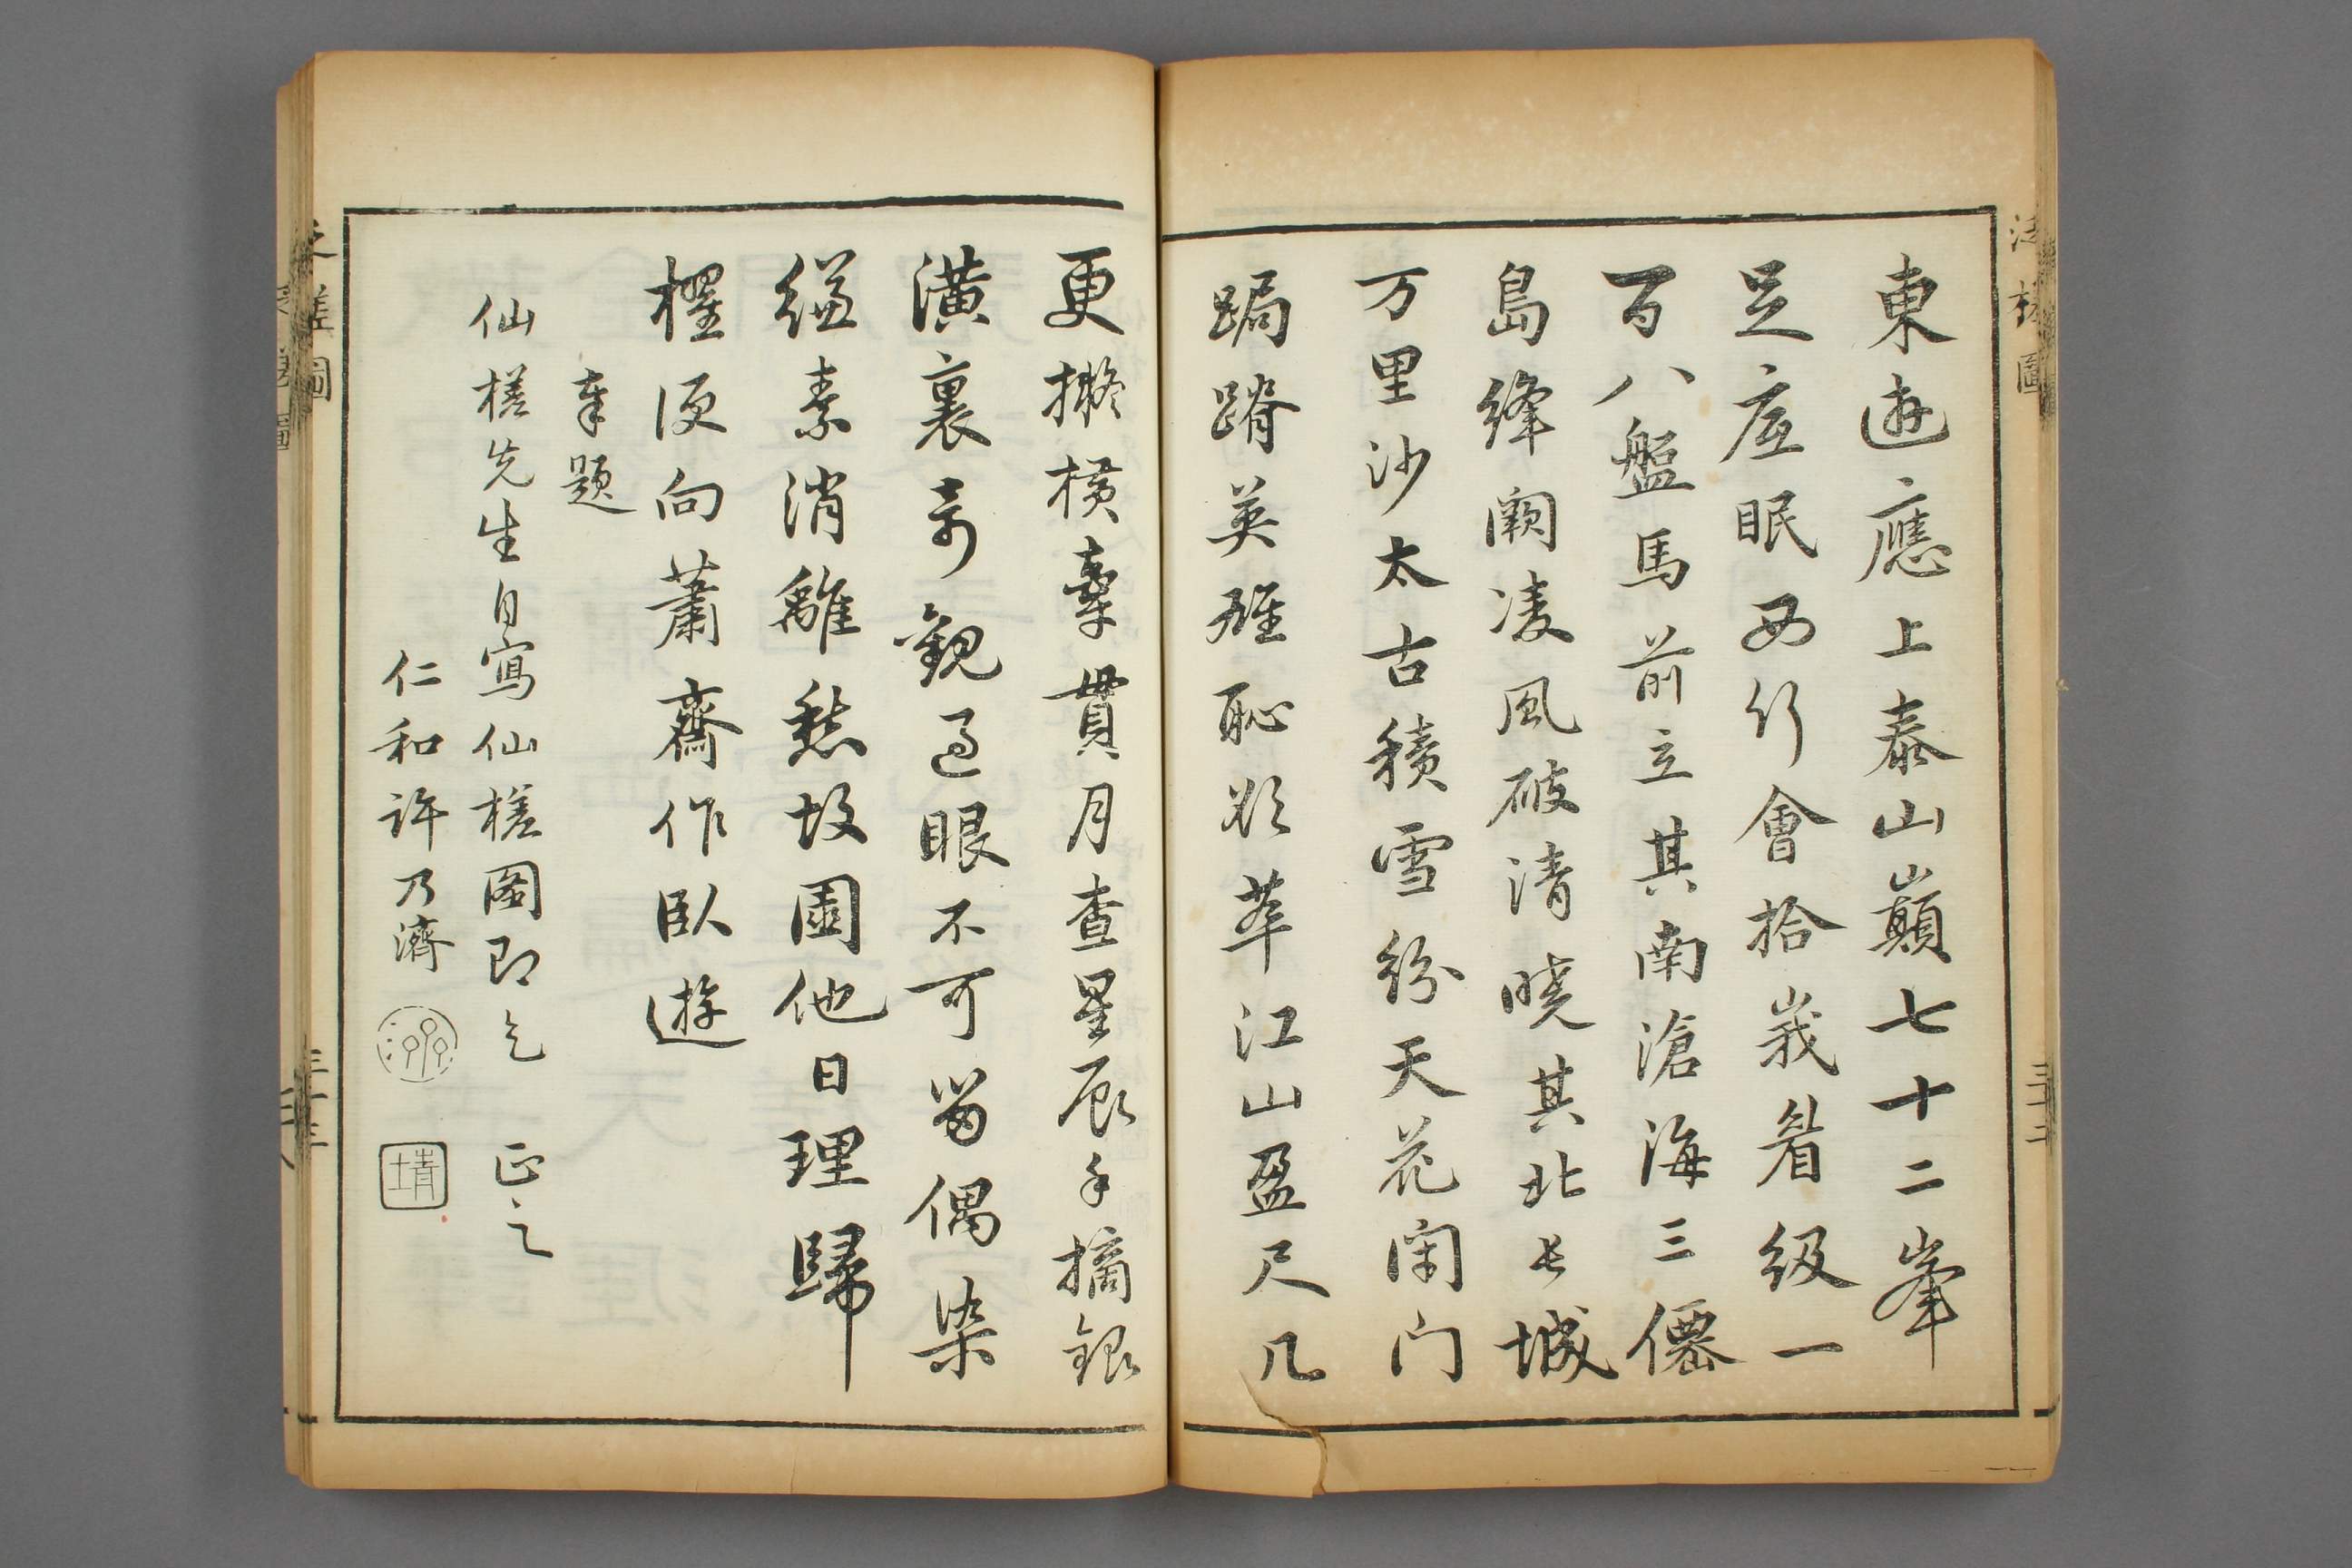 東遊應上泰山巔七十二峯
足底眠西行會拾峩眉級一
百八盤馬前立其南滄海三僊
島絳闕凌風破清曉其北長城
万里沙太古積雪紛天花閉门
跼蹐英雄恥欲萃江山盈尺几
更擬橫牽貫月查星辰手摘銀
潢裏奇觀過眼不可留偶染
縑素消離愁故園他日理歸
櫂便向蕭齋作臥遊
奉題
仙槎先生自寫仙槎圖即乞 正之
仁和許乃濟